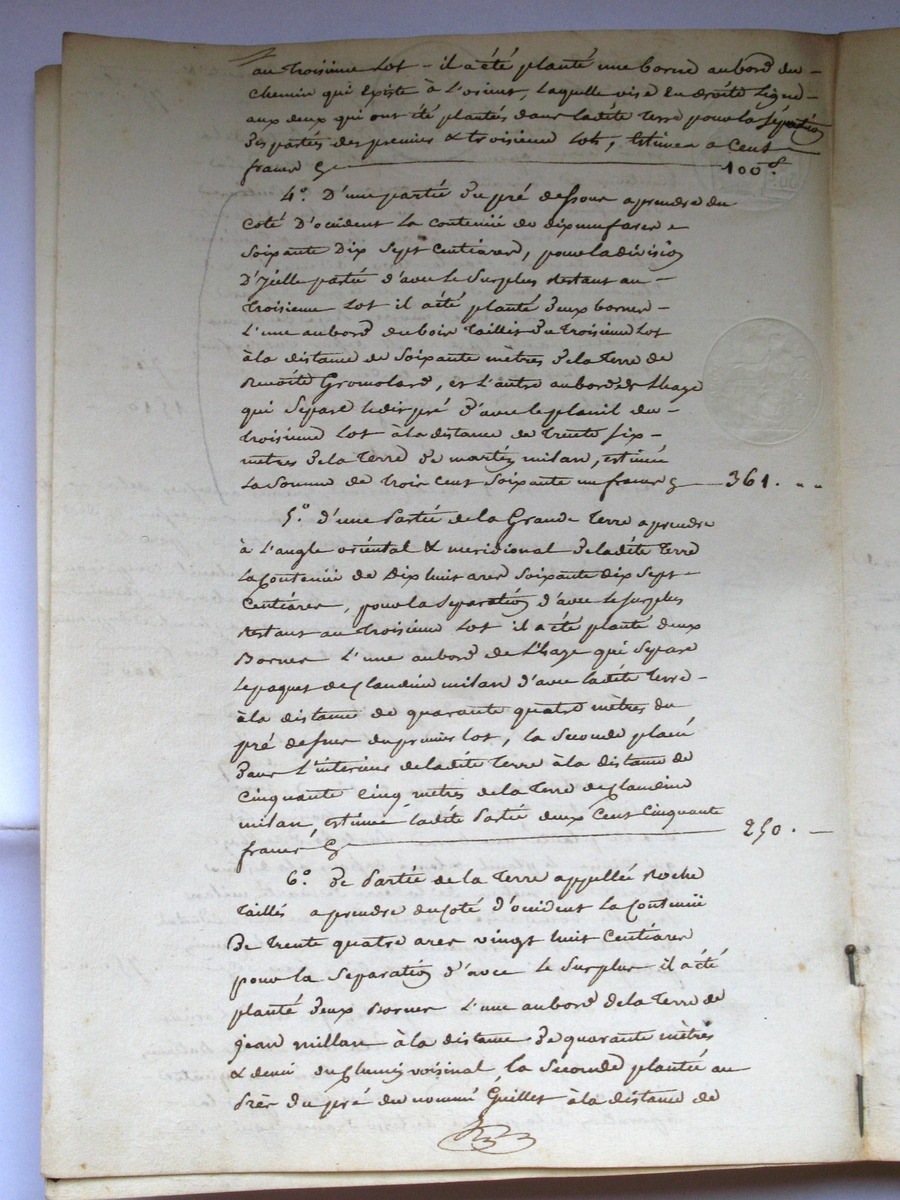 au troisieme Lot - il a été planté une borne au bord du -
chemin qui Existe à L'orient, laquelle vise En droite Ligne -
aux deux qui ont été plantés dans ladite Terre pour la séparation
Des partés des premier & troisieme Lots, Estimée a Cent
francs 100 f.
4.° D'une partie Du pré dessous a prendre du
coté D'occident La contenüe de dix neuf ares e
soixante Dix Sept Centiares, pour la division
D'jcelle partie d'avec le Surplus restant au -
troisieme Lot il a été planté Deux bornes -
L'une au bord du bois Taillis Du troisieme Lot
à la distance de Soixante mètres De la Terre de
Benoîte Gromolard, et L'autre au bord de L'haye
qui Separe ledit pré D'avec le planil du -
troisieme Lot à la distance de trente six -
mètres De la Terre De martin milan, estimée
La Somme de Trois Cent Soixante un francs 361. " "
5.° d'une Partie de la Grande Terre a prendre
à L'angle oriental & meridional De ladite Terre
La Contenüe de Dix huit ares soixante dix sept -
Centiares, pour la Separation d'avec le surplus
restant au troisieme Lot il a été planté deux
Bornes L'une au bord de L'haye qui Separe
le paquet de Claudine milan d'avec ladite Terre -
à la distance de quarante quatre mètres du
pré dessus du premier Lot, la Seconde placée
Dans L'intérieur de ladite Terre à la distance de
Cinquante Cinq mètres de la Terre de Claudine
milan, estimée ladite Partie deux Cent Cinquante
francs 250. -
6.° De Partie de la Terre appellée Roche
Taillés a prendre du coté d'ocident La Contenüe
De trente quatre ares vingt huit Centiares
pour la Separation d'avec le Surplus il a été
planté Deux Bornes L'une au bord De la Terre de
jean millan à la distance De quarante mètres
& demi du Chemin voisinal, la Seconde plantée au
Près Du pré du nommé Guillet à la distance de